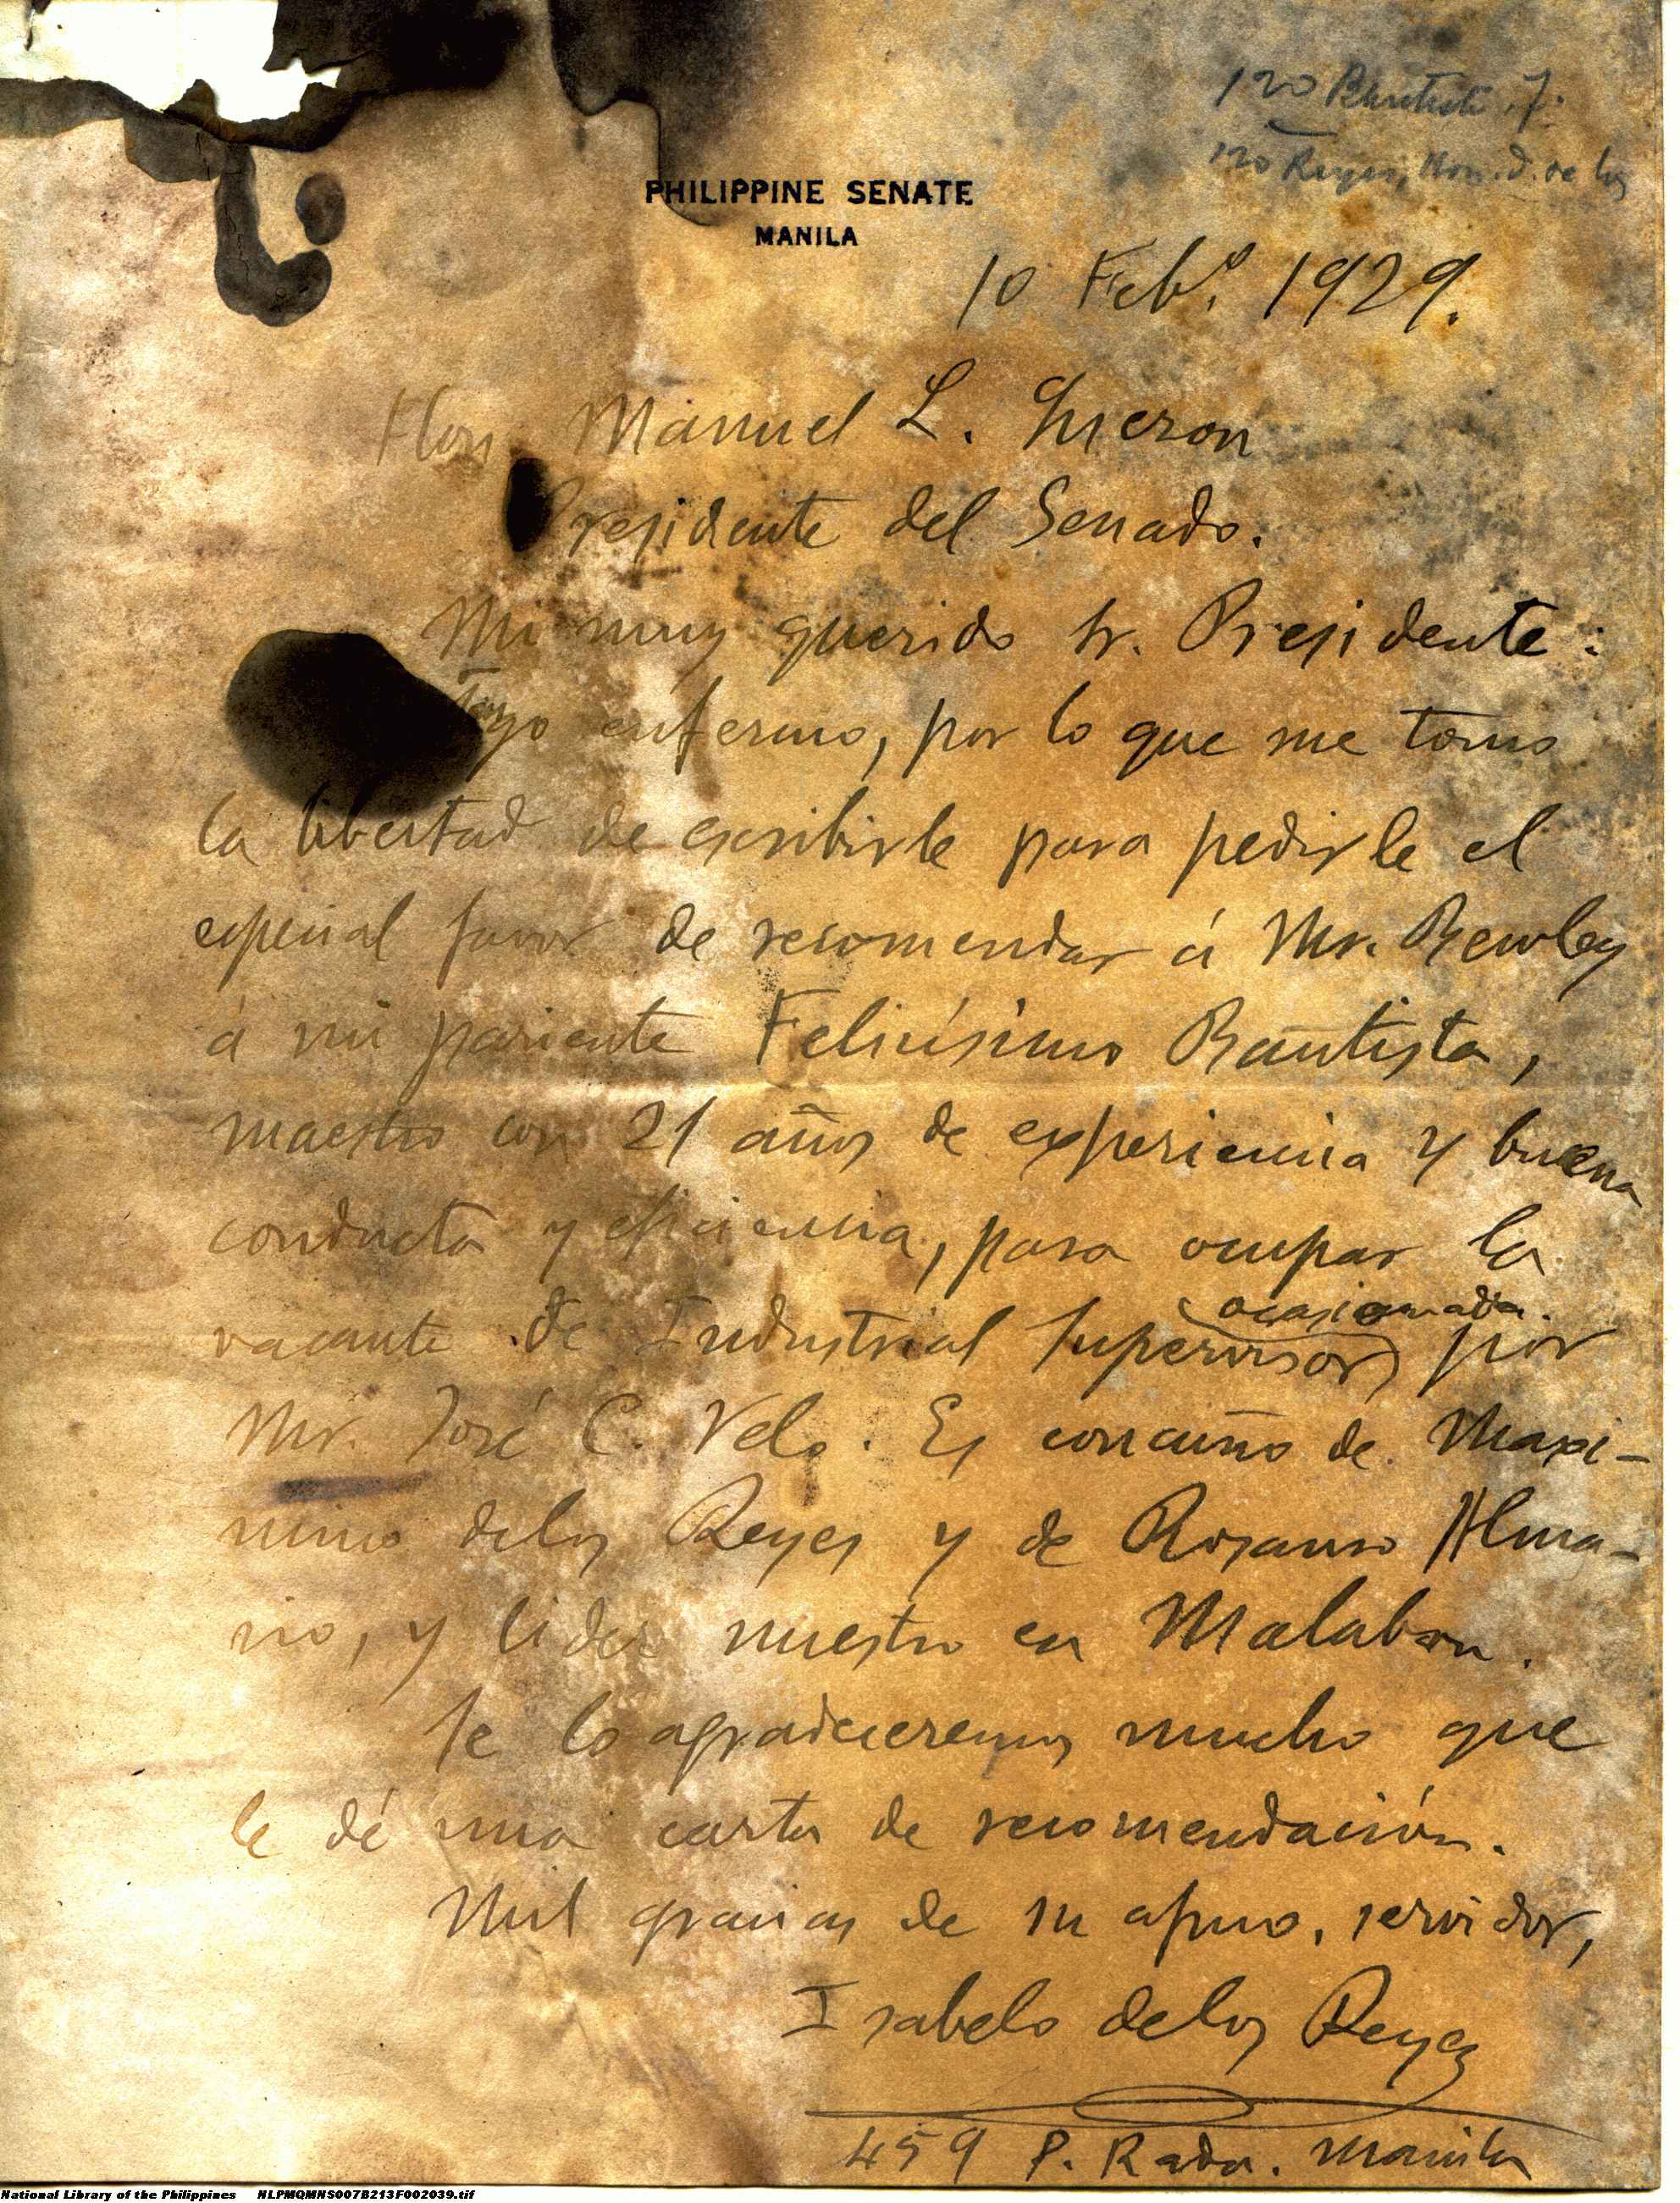 120 Bautista, F.
120 Reyes, Hon. I. de los
PHILIPPINE SENATE
MANILA
10 Febº. 1929.
Hon. Manuel L. Quezon
Presidente del Senado.
Mi muy querido Sr. Presidente:
enfermo, por lo que me tomo
la libertad de escribirle para pedirle el
especial favor de recomendar á Mr. Bewley
á mi pariente Felicísimo Bautista,
maestro con 21 años de experiencia y buena
conducta y eficiencia, para ocupar la
vacante de Industrial Supervisor ocasionada por
Mr. José C. Velo. Es concuño de Maxi-
mino delos Reyes y de Rosauro Alma-
rio, y lider nuestro en Malabon.
Se lo agradeceremos mucho que
le dé una carta de recomendación.
Mil gracias de su afmo. servidor,
Isabelo delos Reyes
459 P. Rada. Manila
National Library of the Philippines NLPMQMNS007B213F002039.tif